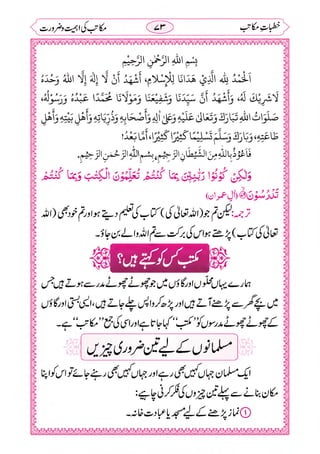 خطباتِ مکاتب
۷۳
مکاتب کی اہمیت و ضرورت
بِسْمِ اللّٰهِ الرَّحْمٰنِ الرَّحِیْمِ
اَلْحَمْدُ لِلّٰهِ الَّذِیْ هَدَانَا لِلْاِسْلَامِ، وَاَشْهَدُ اَنْ لَّا اِلٰهَ اِلَّا اللّٰهُ وَحْدَهٗ
لَا شَرِیْكَ لَهٗ، وَاَشْهَدُ اَنَّ سَیِّدَنَا وَشَفِیْعَنَا وَمَوْلَانَا مُحَمَّدًا عَبْدُهٗ وَرَسُوْلُهٗ،
صَلَوَاتُ اللّٰهِ تَبَارَكَ وَتَعَالٰی عَلَیْهِ وَعَلٰی اٰلِهٖ وَاَصْحَابِهٖ وَذُرِّیَّاتِهٖ وَاَهْلِ بَیْتِهٖ وَاَهْلِ
طَاعَتِهٖ، وَبَارَكَ وَسَلَّمَ تَسْلِیْمًا كَثِیْرًا كَثِیْرًا، اَمَّا بَعْدُ!
فَاَعُوْذُ بِاللّٰهِ مِنَ الشَّیْطَانِ الرَّجِیْمِ، بِسْمِ اللّٰهِ الرَّحْمٰنِ الرَّحِیْمِ.
وَلٰكِنْ كُوْنُوْا رَبّٰنِیّٖنَ بِمَا كُنْتُمْ تُعَلِّمُوْنَ الْكِتٰبَ وَبِمَا كُنْتُمْ
تَدْرُسُوْنَ (اٰلِ عمران)
ترجمہ: لیکن تم جو (اللہ تعالیٰ کی) کتاب کی تعلیم دیتے ہو اور تم خود بھی جو (اللہ
تعالیٰ کی کتاب) پڑھتے ہو اس کی برکت سے تم اللہ والے بن جاؤ۔
مکتب کس کو کہتے ہیں؟
ہمارے یہاں محلوں اور گاؤں میں جو چھوٹے چھوٹے مدرسے ہوتے ہیں جس
میں بچے گھر سے پڑھنے آتے ہیں اور پڑھ کر واپس چلے جاتے ہیں، ایسی بستی اور گاؤں
کے چھوٹے چھوٹے مدرسوں کو ”مکتب“ کہا جاتا ہے اور اسی کی جمع ”مکاتب“ ہے۔
مسلمانوں کے لیے تین ضروری چیزیں
ایک مسلمان جہاں کہیں بھی رہے اور جہاں کہیں بھی رہنے جائے تو اس کو اپنا
مکان بنانے سے پہلے تین چیزوں کی فکر کرنی چاہیے:
① نماز پڑھنے کے لیے مسجد یا عبادت خانہ۔